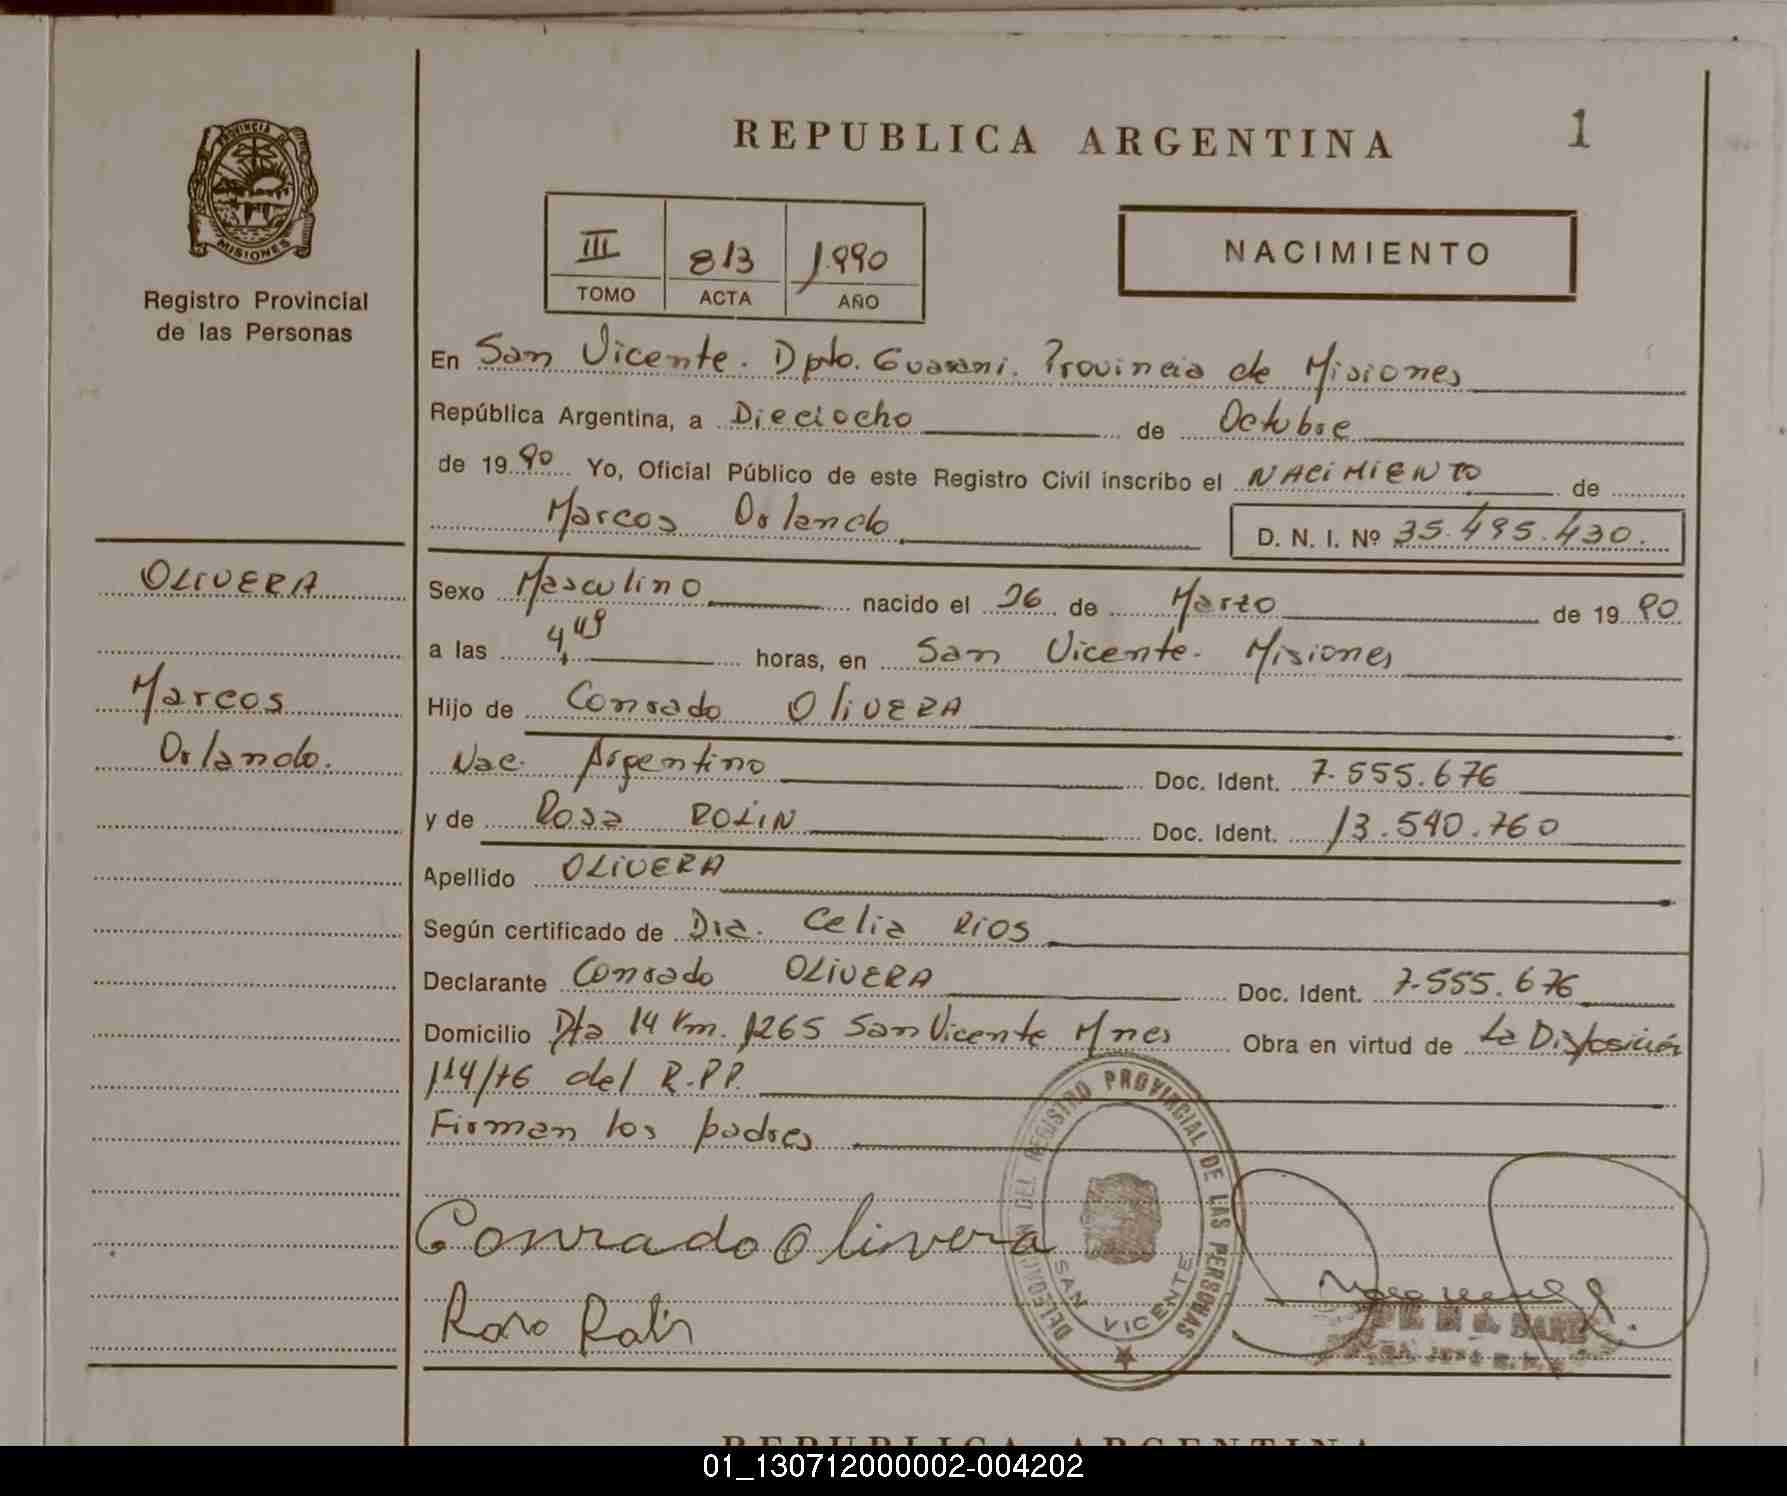 REPUBLICA ARGENTINA
1
PROVINCIA DE
MISIONES
Registro Provincial
de las Personas
III 813 1.990
TOMO ACTA AÑO
NACIMIENTO
En San Vicente. Dpto. Guarani. Provincia de Misiones
República Argentina, a Dieciocho de Octubre
de 1990 Yo, Oficial Público de este Registro Civil inscribo el NACIMIENTO de
Marcos Orlando D. N. I. Nº 35.495.430.
OLIVERA
Marcos
Orlando.
Sexo Masculino nacido el 26 de Marzo de 1990
a las 4,45 horas, en San Vicente. Misiones
Hijo de Conrado OliVERA
Nac. Argentino Doc. Ident. 7.555.676
y de Rosa ROLIN Doc. Ident. 13.540.760
Apellido OLIVERA
Según certificado de Dra. Celia Rios
Declarante Conrado OLIVERA Doc. Ident. 7.555.676
Domicilio Rta 14 Km. 1265 San Vicente Mnes Obra en virtud de La Disposición
114/76 del R.P.P.
Firman los padres
Conrado Olivera
Rosa Rolin
DELEGACION DEL REGISTRO PROVINCIAL DE LAS PERSONAS
SAN VICENTE
REPUBLICA ARGENTINA
01_130712000002-004202